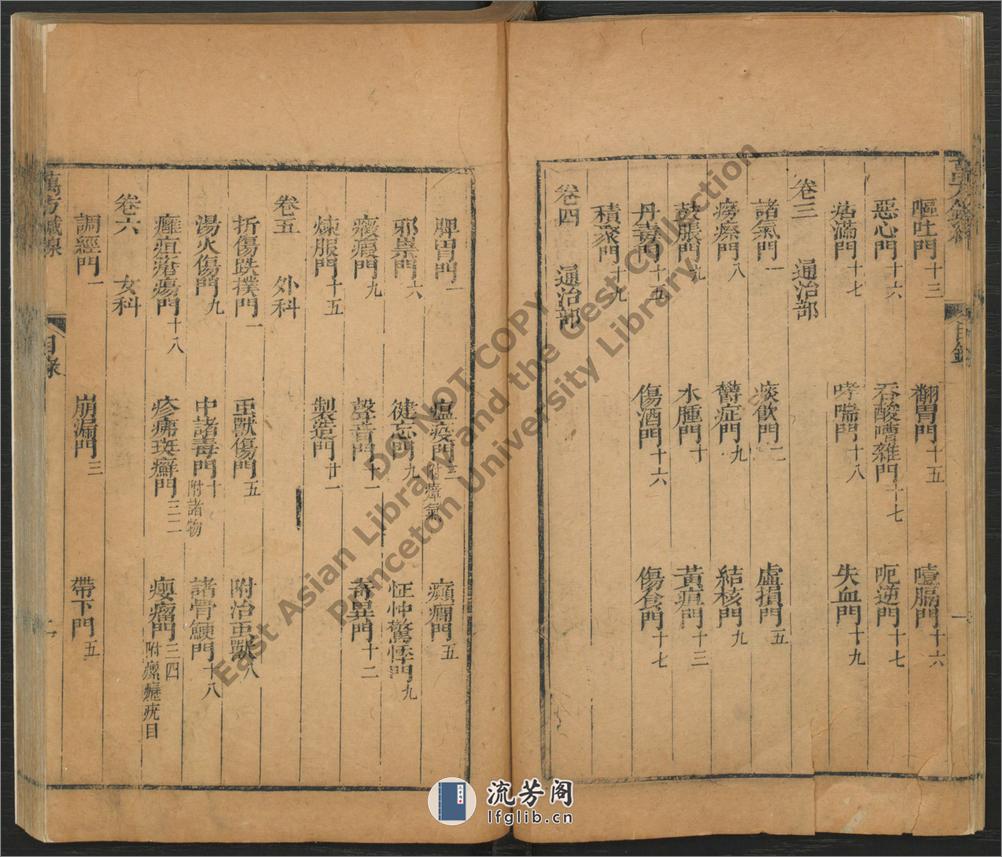 嘔吐門十三 翻胃門十五 噎膈門十六
惡心門十六 吞酸嘈雜門十七 呃逆門十七
痞滿門十七 哮喘門十八 失血門十九
卷三 通治部
諸氣門一 痰飲門二 虛損門五
癆瘵門八 鬱症門九 結核門九
鼓脹門九 水腫門十 黃疸門十三
丹毒門十五 傷酒門十六 傷食門十七
積聚門十九
卷四 通治部
目錄
一
脾胃門一 瘟疫門三附瘴氣 癲癇門五
邪祟門六 健忘門九 怔忡驚悸門九
癥瘕門九 聲音門十一 奇異門十二
煉服門十五 製造門廿一
卷五 外科
折傷跌撲門一 虫獸傷門五 附治虫獸八
湯火傷門九 中諸毒門十附諸物 諸骨鯁門十八
癰疽瘡瘍門十八 疹痛斑癬門三二 癭瘤門三四附瘰癧疣目
卷六 女科
調經門一 崩漏門三 帶下門五
萬方鍼線 目錄 二
DO NOT COPY
East Asian Library and the Gest Collection
Princeton University Library
流芳阁
lfglib.cn